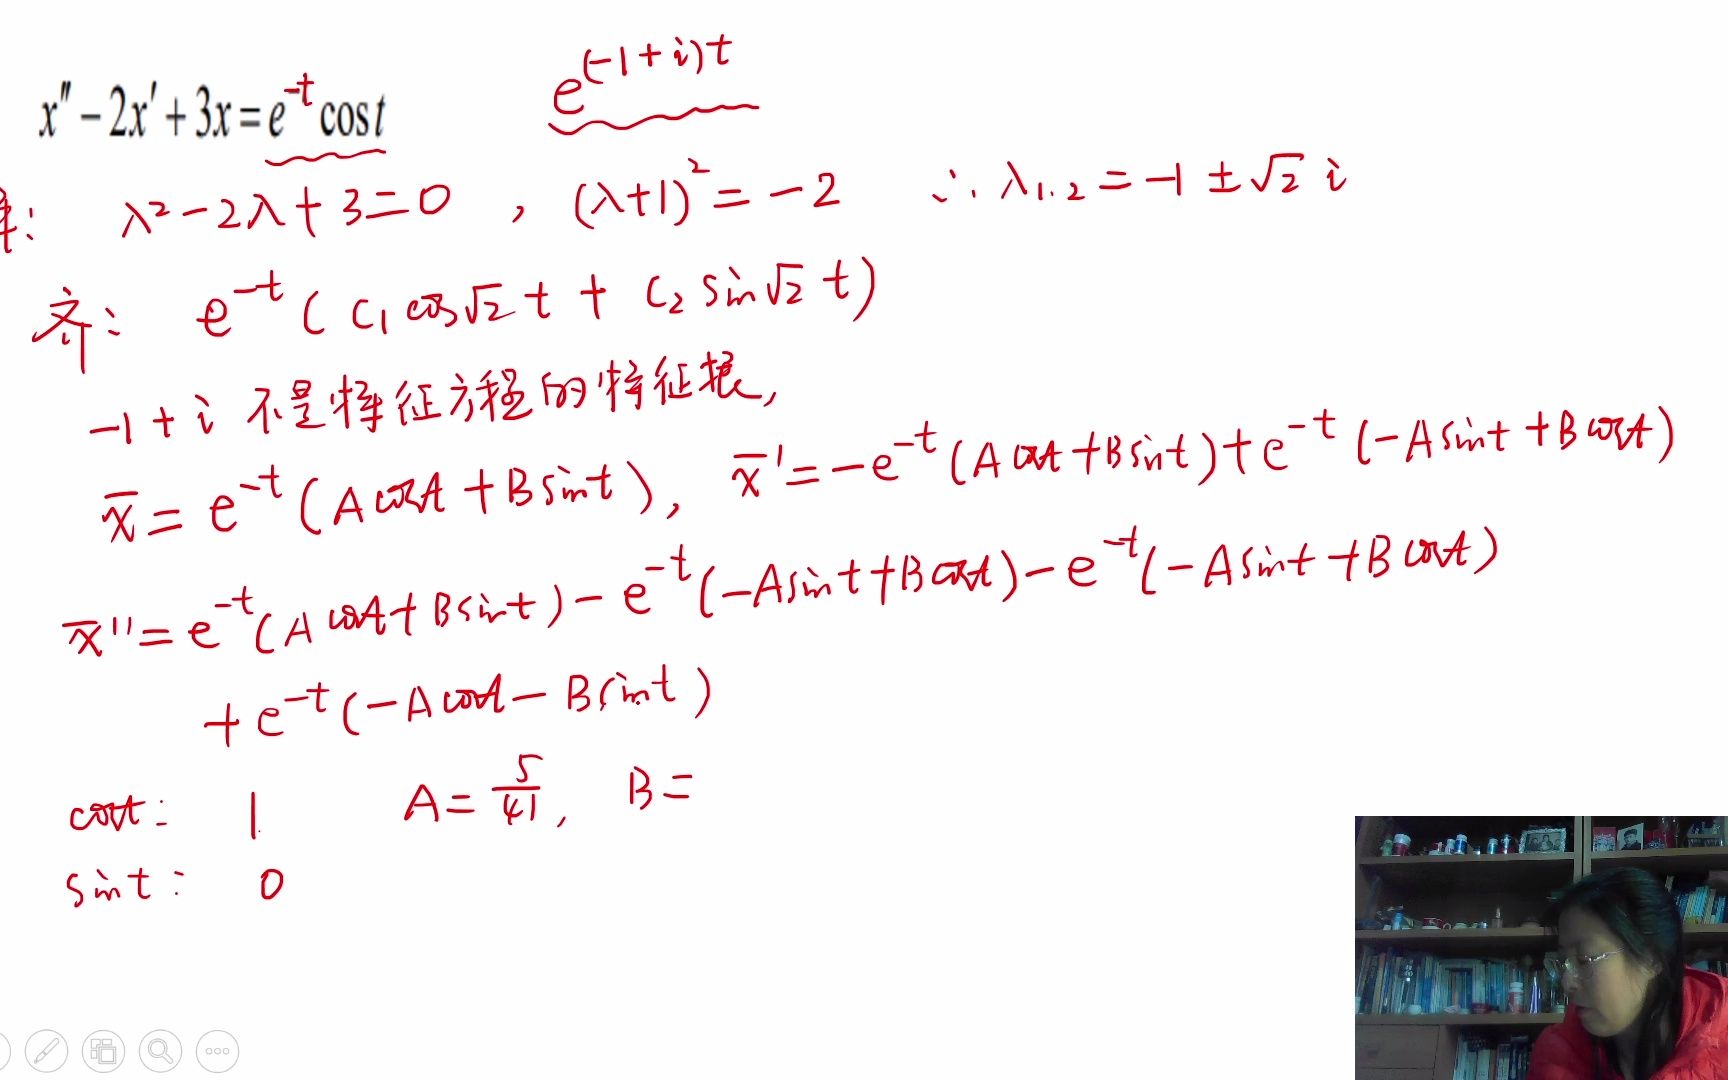 e^{(-1+i)t}
x″ − 2x′ + 3x = e^{-t} cos t
解: λ² − 2λ + 3 = 0 , (λ+1)² = −2 ∴ λ₁.₂ = −1 ± √2 i
齐: e^{-t} ( c₁ cos√2 t + c₂ sin√2 t )
−1 + i 不是特征方程的特征根,
x̄ = e^{-t} (A cost + B sint), x̄′ = −e^{-t} (A cost + B sint) + e^{-t} (−A sint + B cost)
x̄″ = e^{-t} (A cost + B sint) − e^{-t} (−A sint + B cost) − e^{-t} (−A sint + B cost)
+ e^{-t} (−A cost − B sint)
cost: 1 A = 5/41, B =
sint: 0